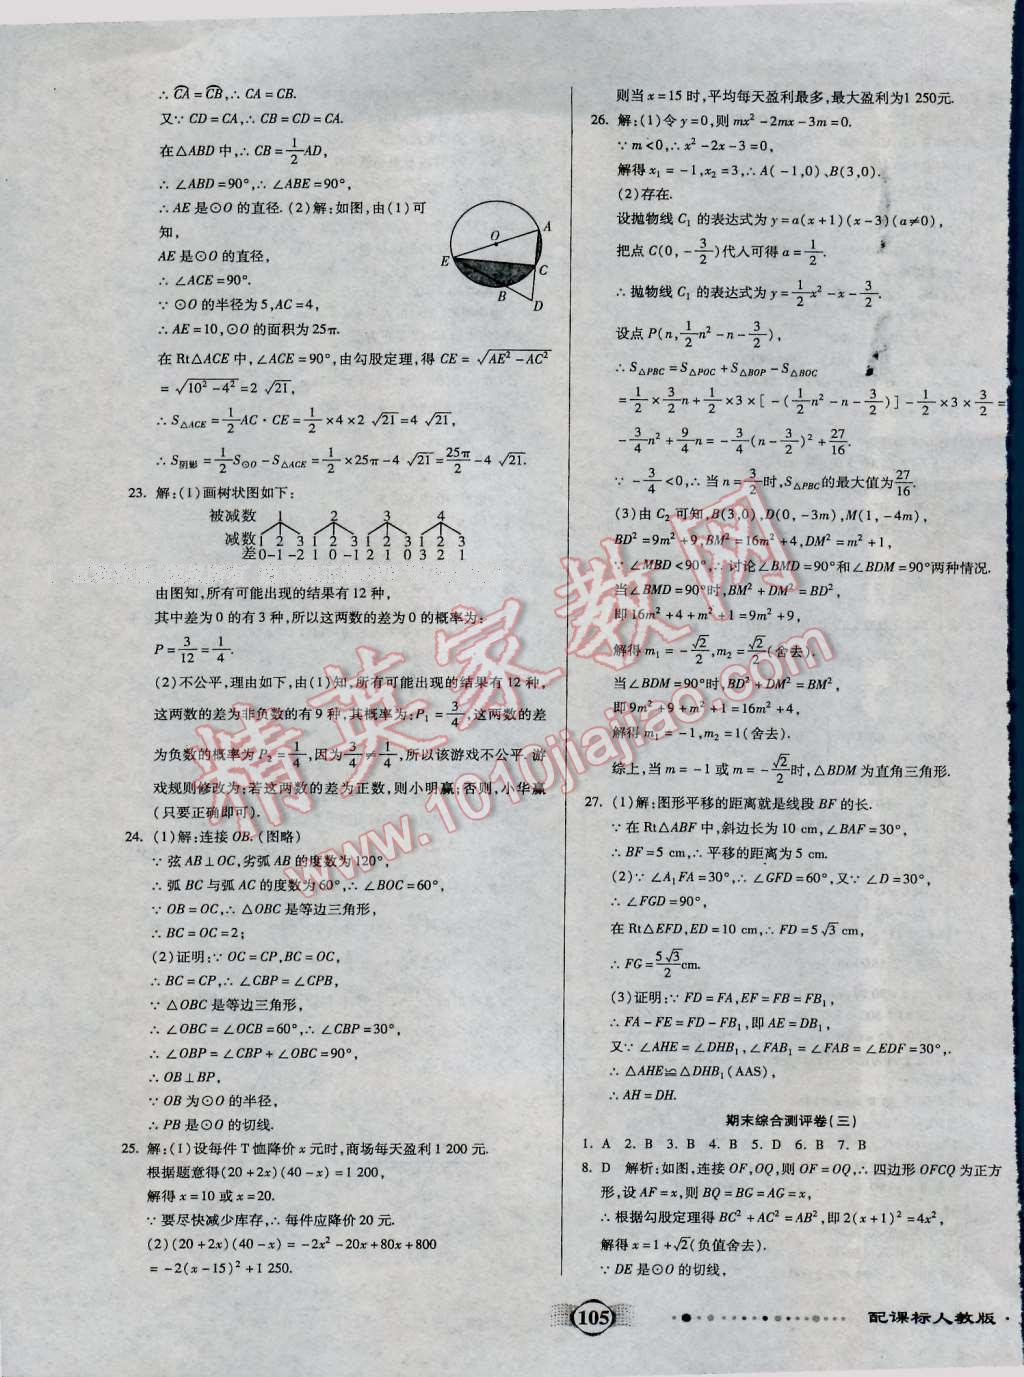 ∴ C͡A = C͡B,∴ CA = CB.
又∵ CD = CA,∴ CB = CD = CA.
在△ABD 中,∴ CB = 1/2 AD,
∴ ∠ABD = 90°,∴ ∠ABE = 90°,
∴ AE 是⊙O 的直径. (2)解:如图,由(1)可
知,
AE 是⊙O 的直径,
∴ ∠ACE = 90°.
∵ ⊙O 的半径为 5,AC = 4,
∴ AE = 10,⊙O 的面积为 25π.
在 Rt△ACE 中,∠ACE = 90°,由勾股定理,得 CE = √(AE² − AC²)
= √(10² − 4²) = 2 √21,
∴ S△ACE = 1/2 AC · CE = 1/2 × 4 × 2 √21 = 4 √21,
∴ S阴影 = 1/2 S⊙O − S△ACE = 1/2 × 25π − 4 √21 = 25π/2 − 4 √21.
A
O
E
C
B
D
23. 解:(1)画树状图如下:
被减数 1 2 3 4
减数 1 2 3 1 2 3 1 2 3 1 2 3
差 0 −1 −2 1 0 −1 2 1 0 3 2 1
由图知,所有可能出现的结果有 12 种,
其中差为 0 的有 3 种,所以这两数的差为 0 的概率为:
P = 3/12 = 1/4.
(2)不公平,理由如下,由(1)知,所有可能出现的结果有 12 种,
这两数的差为非负数的有 9 种,其概率为:P₁ = 3/4,这两数的差
为负数的概率为 P₂ = 1/4,因为 3/4 ≠ 1/4,所以该游戏不公平. 游
戏规则修改为:若这两数的差为正数,则小明赢;否则,小华赢
(只要正确即可).
24. (1)解:连接 OB. (图略)
∵ 弦 AB⊥OC,劣弧 AB 的度数为 120°,
∴ 弧 BC 与弧 AC 的度数为 60°,∴ ∠BOC = 60°,
∵ OB = OC,∴ △OBC 是等边三角形,
∴ BC = OC = 2;
(2)证明:∵ OC = CP,BC = OC,
∴ BC = CP,∴ ∠CBP = ∠CPB,
∵ △OBC 是等边三角形,
∴ ∠OBC = ∠OCB = 60°,∴ ∠CBP = 30°,
∴ ∠OBP = ∠CBP + ∠OBC = 90°,
∴ OB⊥BP,
∵ OB 为⊙O 的半径,
∴ PB 是⊙O 的切线.
25. 解:(1)设每件 T 恤降价 x 元时,商场每天盈利 1 200 元.
根据题意得(20 + 2x)(40 − x) = 1 200,
解得 x = 10 或 x = 20.
∵ 要尽快减少库存,∴ 每件应降价 20 元.
(2)(20 + 2x)(40 − x) = −2x² − 20x + 80x + 800
= −2(x − 15)² + 1 250.
则当 x = 15 时,平均每天盈利最多,最大盈利为 1 250元.
26. 解:(1)令 y = 0,则 mx² − 2mx − 3m = 0.
∵ m < 0,∴ x² − 2x − 3 = 0;
解得 x₁ = −1,x₂ = 3,∴ A( −1,0)、B(3,0).
(2)存在.
设抛物线 C₁ 的表达式为 y = a(x + 1)(x − 3)(a≠0),
把点 C(0, − 3/2)代人可得 a = 1/2.
∴ 抛物线 C₁ 的表达式为 y = 1/2 x² − x − 3/2.
设点 P(n, 1/2 n² − n − 3/2),
∴ S△PBC = S△POC + S△BOP − S△BOC
= 1/2 × 3/2 n + 1/2 × 3 × [ −( 1/2 n² − n − 3/2 )] − 1/2 × 3 × 3/2 =
− 3/4 n² + 9/4 n = − 3/4 (n − 3/2)² + 27/16.
∵ − 3/4 < 0,∴ 当 n = 3/2 时,S△PBC的最大值为 27/16.
(3)由 C₂ 可知,B(3,0),D(0, −3m),M(1, −4m),
BD² = 9m² + 9,BM² = 16m² + 4,DM² = m² + 1,
∵ ∠MBD < 90°,∴ 讨论∠BMD = 90°和∠BDM = 90°两种情况.
当∠BMD = 90°时,BM² + DM² = BD²,
即 16m² + 4 + m² + 1 = 9m² + 9,
解得 m₁ = − √2/2,m₂ = √2/2(舍去).
当∠BDM = 90°时,BD² + DM² = BM²,
即 9m² + 9 + m² + 1 = 16m² + 4,
解得 m₁ = −1,m₂ = 1(舍去).
综上,当 m = −1 或 m = − √2/2时,△BDM 为直角三角形.
27. (1)解:图形平移的距离就是线段 BF 的长.
∵ 在 Rt△ABF 中,斜边长为 10 cm,∠BAF = 30°,
∴ BF = 5 cm,∴ 平移的距离为 5 cm.
(2)∵ ∠A₁FA = 30°,∴ ∠GFD = 60°,又∵ ∠D = 30°,
∴ ∠FGD = 90°,
在 Rt△EFD 中,ED = 10 cm,∴ FD = 5 √3 cm,
∴ FG = 5√3/2 cm.
(3)证明:∵ FD = FA,EF = FB = FB₁,
∴ FA − FE = FD − FB₁,即 AE = DB₁,
又∵ ∠AHE = ∠DHB₁,∠FAB₁ = ∠FAB = ∠EDF = 30°,.
∴ △AHE≌△DHB₁(AAS),
∴ AH = DH.
期末综合测评卷(三)
1. A 2. B 3. B 4. B 5. D 6. B 7. B
8. D 解析:如图,连接 OF,OQ,则 OF = OQ,∴ 四边形 OFCQ 为正方
形,设 AF = x,则 BQ = BG = AG = x,
∴ 根据勾股定理得 BC² + AC² = AB²,即 2(x + 1)² = 4x²,
解得 x = 1 + √2(负值舍去).
∵ DE 是⊙O 的切线,
105
配课标人教版
精英家教网
www.1010jiajiao.com